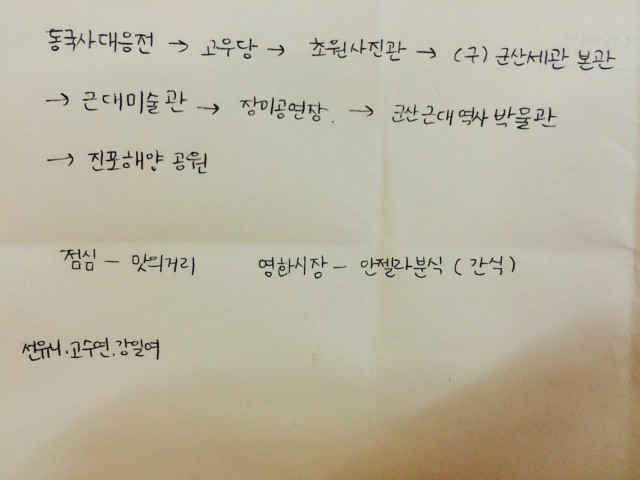 동국사대웅전 → 고우당 → 초원사진관 → (구) 군산세관 본관
→ 근대미술관 → 장미공연장. → 군산근대역사 박물관
→ 진포해양 공원
점심 - 맛의거리 영화시장 - 안젤라분식 (간식)
선유나.고수연.강일여